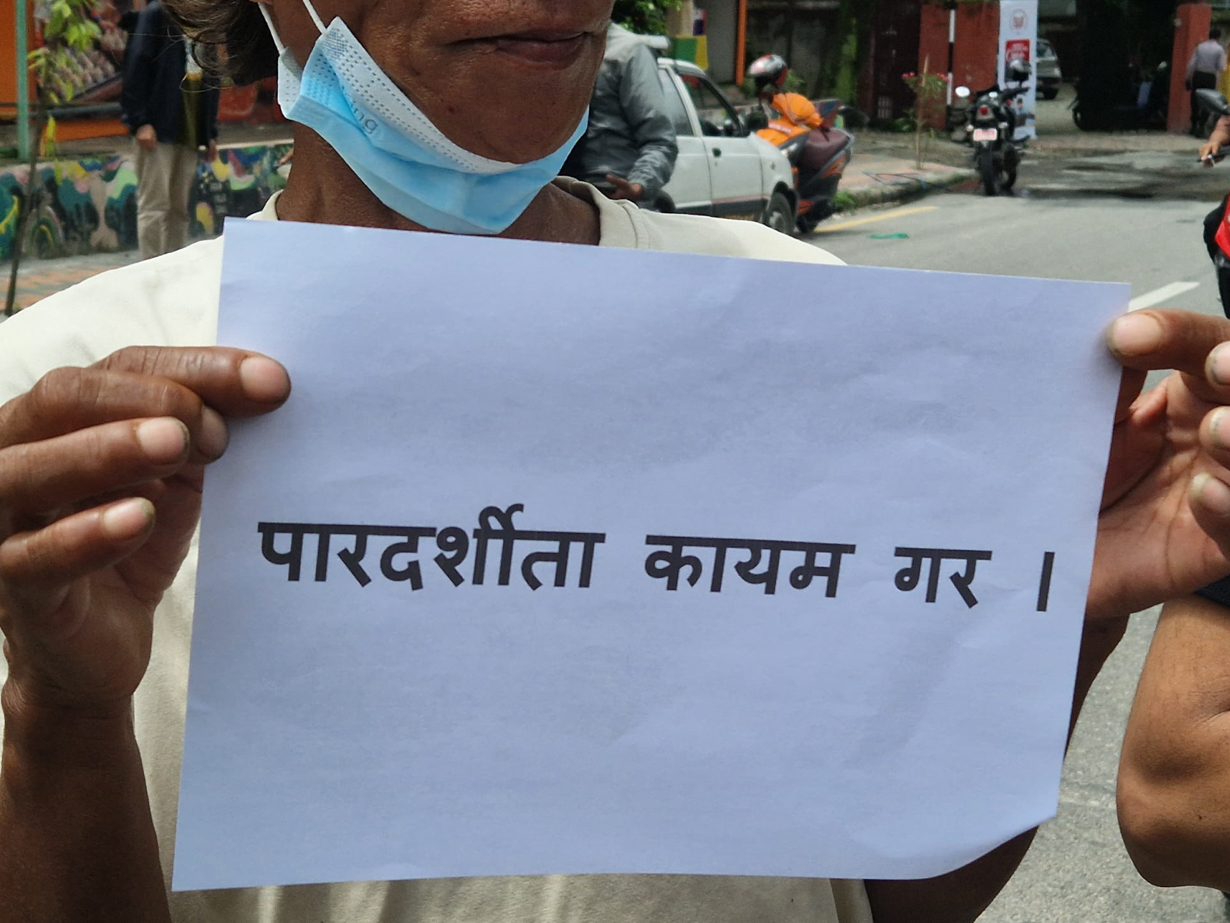 पारदर्शीता कायम गर ।